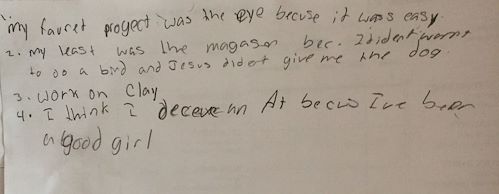 1.
my favret progect was the eye becuse it wass easy.
2. my least was the magason bec. I dident wornt
to do a bird and Jesus dident give me the dog.
3. work on Clay
4. I think I deceve an At becus I've been
a good girl